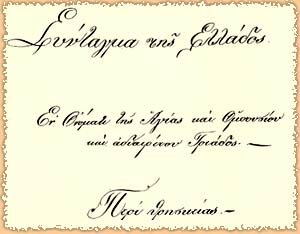 Σύνταγμα τῆς Ἑλλάδος.
Ἐν Ὀνόματι τῆς Ἁγίας καὶ Ὁμοουσίου
καὶ ἀδιαιρέτου Τριάδος. —
Περὶ θρησκείας. —